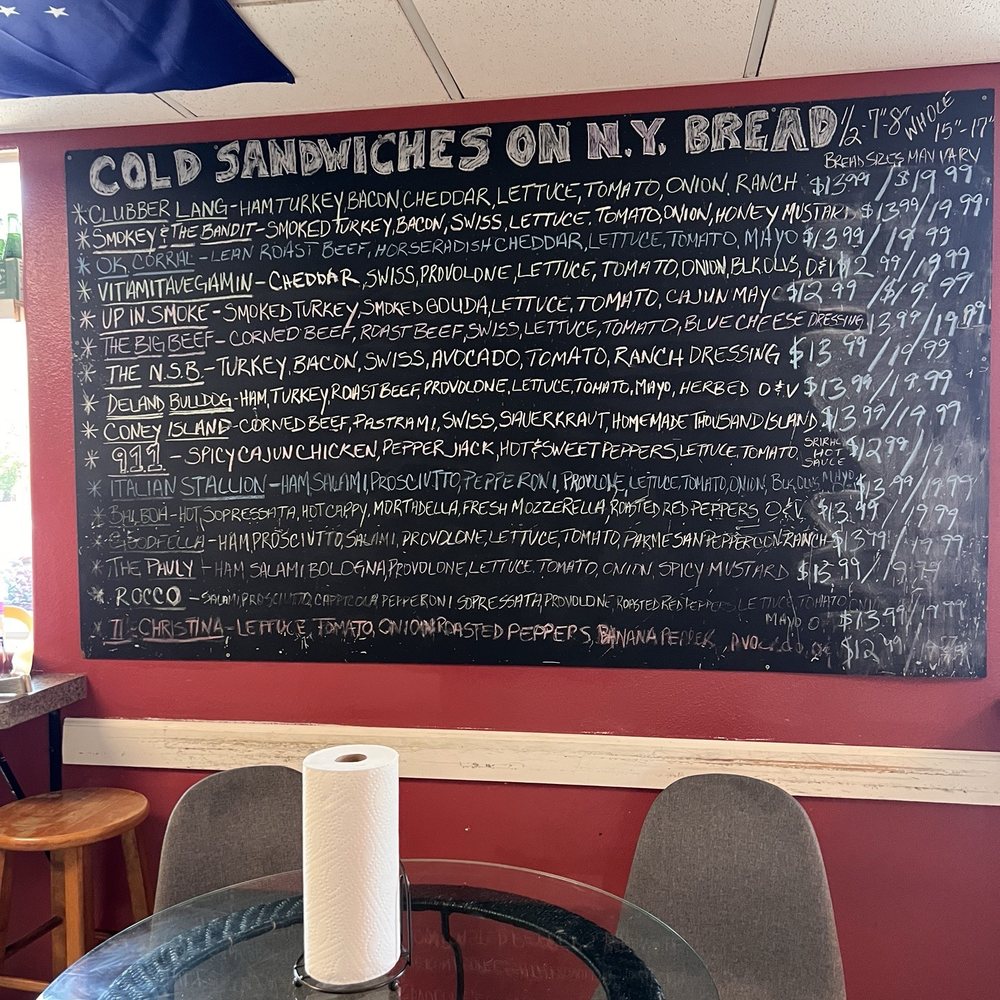 COLD SANDWICHES ON N.Y. BREAD 1/2-7"8" WHOLE 15"-17"
BREAD SIZES MAY VARY
* CLUBBER LANG - HAM TURKEY BACON, CHEDDAR, LETTUCE, TOMATO, ONION, RANCH $13.99 / $19.99
* SMOKEY & THE BANDIT - SMOKED TURKEY, BACON, SWISS, LETTUCE, TOMATO, ONION, HONEY MUSTARD $13.99 / 19.99
* OK, CORRAL - LEAN ROAST BEEF, HORSERADISH CHEDDAR, LETTUCE, TOMATO, MAYO $13.99 / 19.99
* VITAMITAVEGIAMIN - CHEDDAR, SWISS, PROVOLONE, LETTUCE, TOMATO, ONION, BLK OLVS, O&V $12.99 / 19.99
* UP IN SMOKE - SMOKED TURKEY, SMOKED GOUDA, LETTUCE, TOMATO, CAJUN MAYO $12.99 / $19.99
* THE BIG BEEF - CORNED BEEF, ROAST BEEF, SWISS, LETTUCE, TOMATO, BLUE CHEESE DRESSING 13.99 / 19.99
* THE N.S.B. - TURKEY, BACON, SWISS, AVOCADO, TOMATO, RANCH DRESSING $13.99 / 19.99
* DELAND BULLDOG - HAM, TURKEY, ROAST BEEF, PROVOLONE, LETTUCE, TOMATO, MAYO, HERBED O&V $13.99 / 19.99
* CONEY ISLAND - CORNED BEEF, PASTRAMI, SWISS, SAUERKRAUT, HOMEMADE THOUSAND ISLAND $13.99 / 19.99
* 911 - SPICY CAJUN CHICKEN, PEPPER JACK, HOT & SWEET PEPPERS, LETTUCE, TOMATO, HOT SAUCE $12.99 / 19
* ITALIAN STALLION - HAM, SALAMI, PROSCIUTTO, PEPPERONI, PROVLONE, LETTUCE, TOMATO, ONION, BLK OLVS MAYO $13.99 / 19.99
* BALBOA - HOT SOPRESSATA, HOT CAPPY, MORTADELLA, FRESH MOZZERELLA, ROASTED RED PEPPERS O&V $13.99 / 19.99
* GOODFELLA - HAM, PROSCIUTTO, SALAMI, PROVOLONE, LETTUCE, TOMATO, PARMESAN PEPPERCORN RANCH $13.99 / 19.99
* THE PAULY - HAM SALAMI BOLOGNA, PROVOLONE, LETTUCE, TOMATO, ONION, SPICY MUSTARD $13.99 / 19.99
* ROCCO - SALAMI, PROSCIUTTO, CAPPICOLA, PEPPERONI SOPRESSATA, PROVOLONE, ROASTED RED PEPPERS LETTUCE TOMATO ONION
MAYO $13.99 / 19.99
* CHRISTINA - LETTUCE, TOMATO, ONION ROASTED PEPPERS, BANANA PEPPER, AVOCADO, $12.99